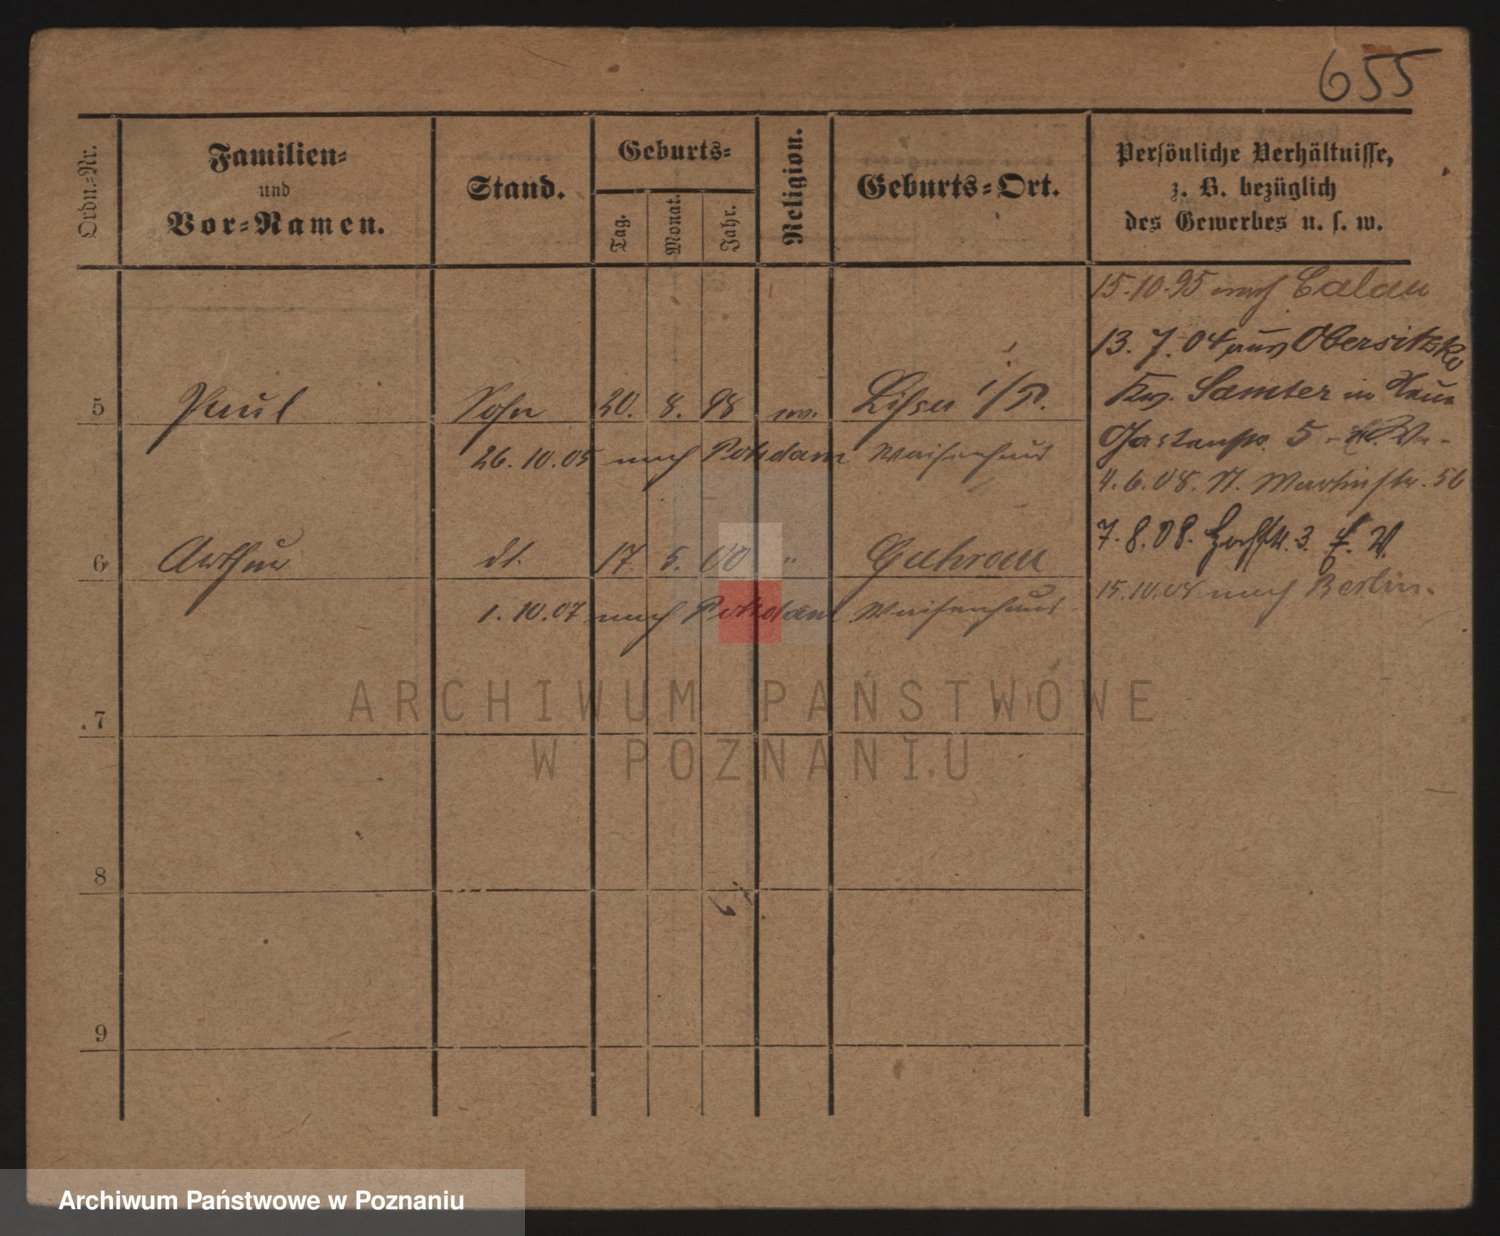 655
Ordn.-Nr.
Familien-
und
Vor-Namen.
Stand.
Geburts-
Tag.
Monat.
Jahr.
Religion.
Geburts-Ort.
Persönliche Verhältnisse,
z. B. bezüglich
des Gewerbes u. s. w.
15.10.95 nach Calau
13. 7. 04 aus Obersitzko
Samter in
5 Paul Sohn 20. 8. 98 ev. Lissa i/P.
5
26.10.05 nach Potsdam Waisenhaus
4.6.08. St. Martinstr. 56
7.8.08. 3.
6 Arthur dt. 17. 5. 00 " Guhrau
15.10.08 nach Berlin.
1.10.07 nach Potsdam Waisenhaus
ARCHIWUM PAŃSTWOWE
W POZNANIU
7
8
9
Archiwum Państwowe w Poznaniu